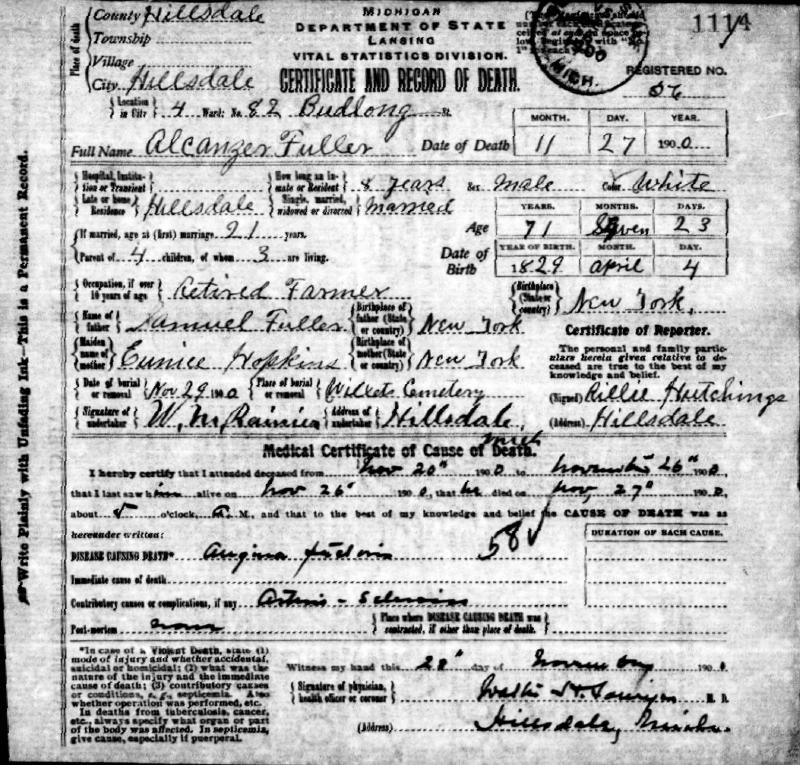 County Hillsdale
Township
Village
City Hillsdale
Place of death
MICHIGAN
DEPARTMENT OF STATE
LANSING
VITAL STATISTICS DIVISION.
CERTIFICATE AND RECORD OF DEATH.
MICH.
REGISTERED NO.
56
Location in City 4 Ward: No. 82 Budlong St.
Full Name Alcanzer Fuller Date of Death
MONTH. DAY. YEAR.
11 27 1900
Hospital, Institution or Transient How long an Inmate or Resident 8 years Sex Male Color White
Late or home Residence Hillsdale Single, married, widowed or divorced Married
Age YEARS. MONTHS. DAYS.
71 Seven 23
If married, age at (first) marriage 21 years.
Parent of 4 children, of whom 3 are living.
Date of Birth YEAR OF BIRTH. MONTH. DAY.
1829 April 4
Occupation, if over 10 years of age Retired Farmer
Birthplace (State or country) New York.
Name of father Samuel Fuller Birthplace of father (State or country) New York
Maiden name of mother Eunice Hopkins Birthplace of mother (State or country) New York
Certificate of Reporter.
The personal and family particulars herein given relative to deceased are true to the best of my knowledge and belief.
Date of burial or removal Nov 29 1900 Place of burial or removal Cemetery
(Signed) Rillie Hutchings
Signature of undertaker W. M. Address of undertaker Hillsdale,
(Address) Hillsdale
Medical Certificate of Cause of Death.
I hereby certify that I attended deceased from Nov 20" 1900 to November 26" 1900
that I last saw him alive on Nov 26" 1900, that he died on Nov, 27" 1900,
about 5 o'clock, A. M., and that to the best of my knowledge and belief the CAUSE OF DEATH was as
hereunder written:
DURATION OF EACH CAUSE.
DISEASE CAUSING DEATH* Angina Pectoris 58
Immediate cause of death
Contributory causes or complications, if any Arterio-Sclerosis
Post-mortem none Place where DISEASE CAUSING DEATH was contracted, if other than place of death.
*In case of a Violent Death, state (1)
mode of injury and whether accidental,
suicidal or homicidal; (2) what was the
nature of the injury and the immediate
cause of death; (3) contributory causes
or conditions, e. g., septicemia. Also
whether operation was performed, etc.
In deaths from tuberculosis, cancer,
etc., always specify what organ or part
of the body was affected. In septicemia,
give cause, especially if puerperal.
Witness my hand this 28" day of November 1900.
Signature of physician, health officer or coroner Walter H. Sawyer M. D.
(Address) Hillsdale, Mich.
Write Plainly with Unfading Ink—This is a Permanent Record.